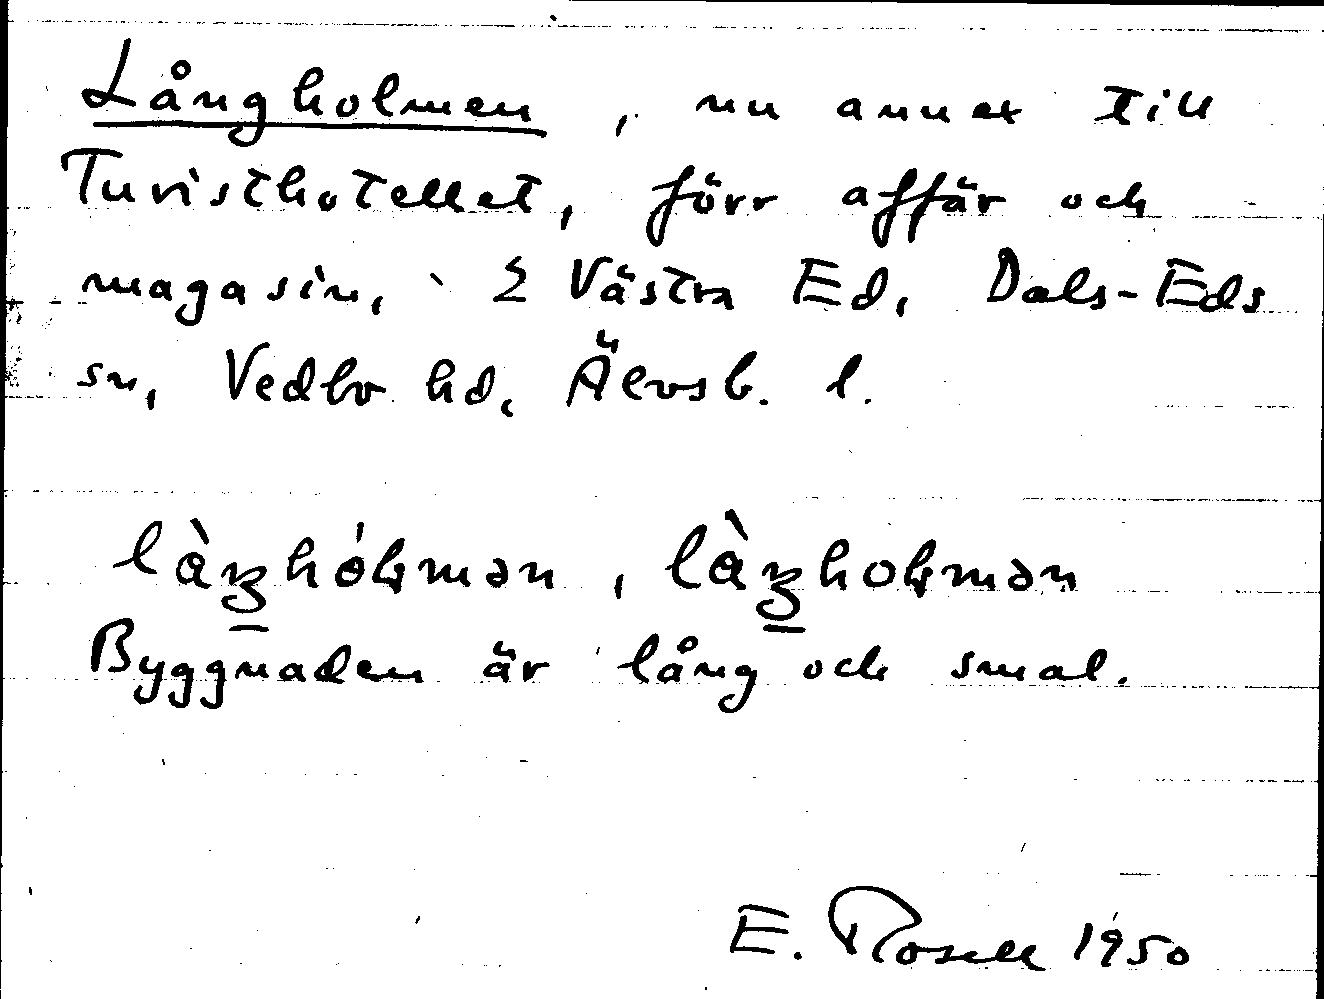 Långholmen, nu annex till
Turisthotellet, förr affär och
magasin, i Västra Ed, Dals-Eds
sn, Vedbo hd, Älvsb. l.
Byggnaden är lång och smal.
E. Rosell 1950